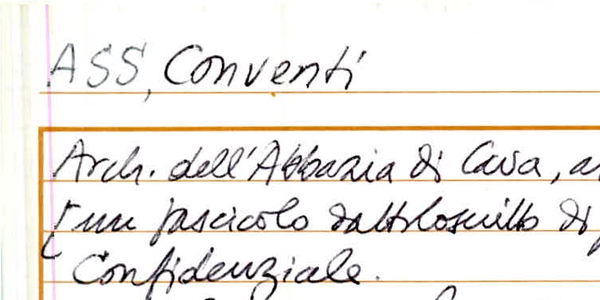 ASS, Conventi
Arch. dell'Abbazia di Cava,
[un fascicolo dattiloscritto di
Confidenziale.